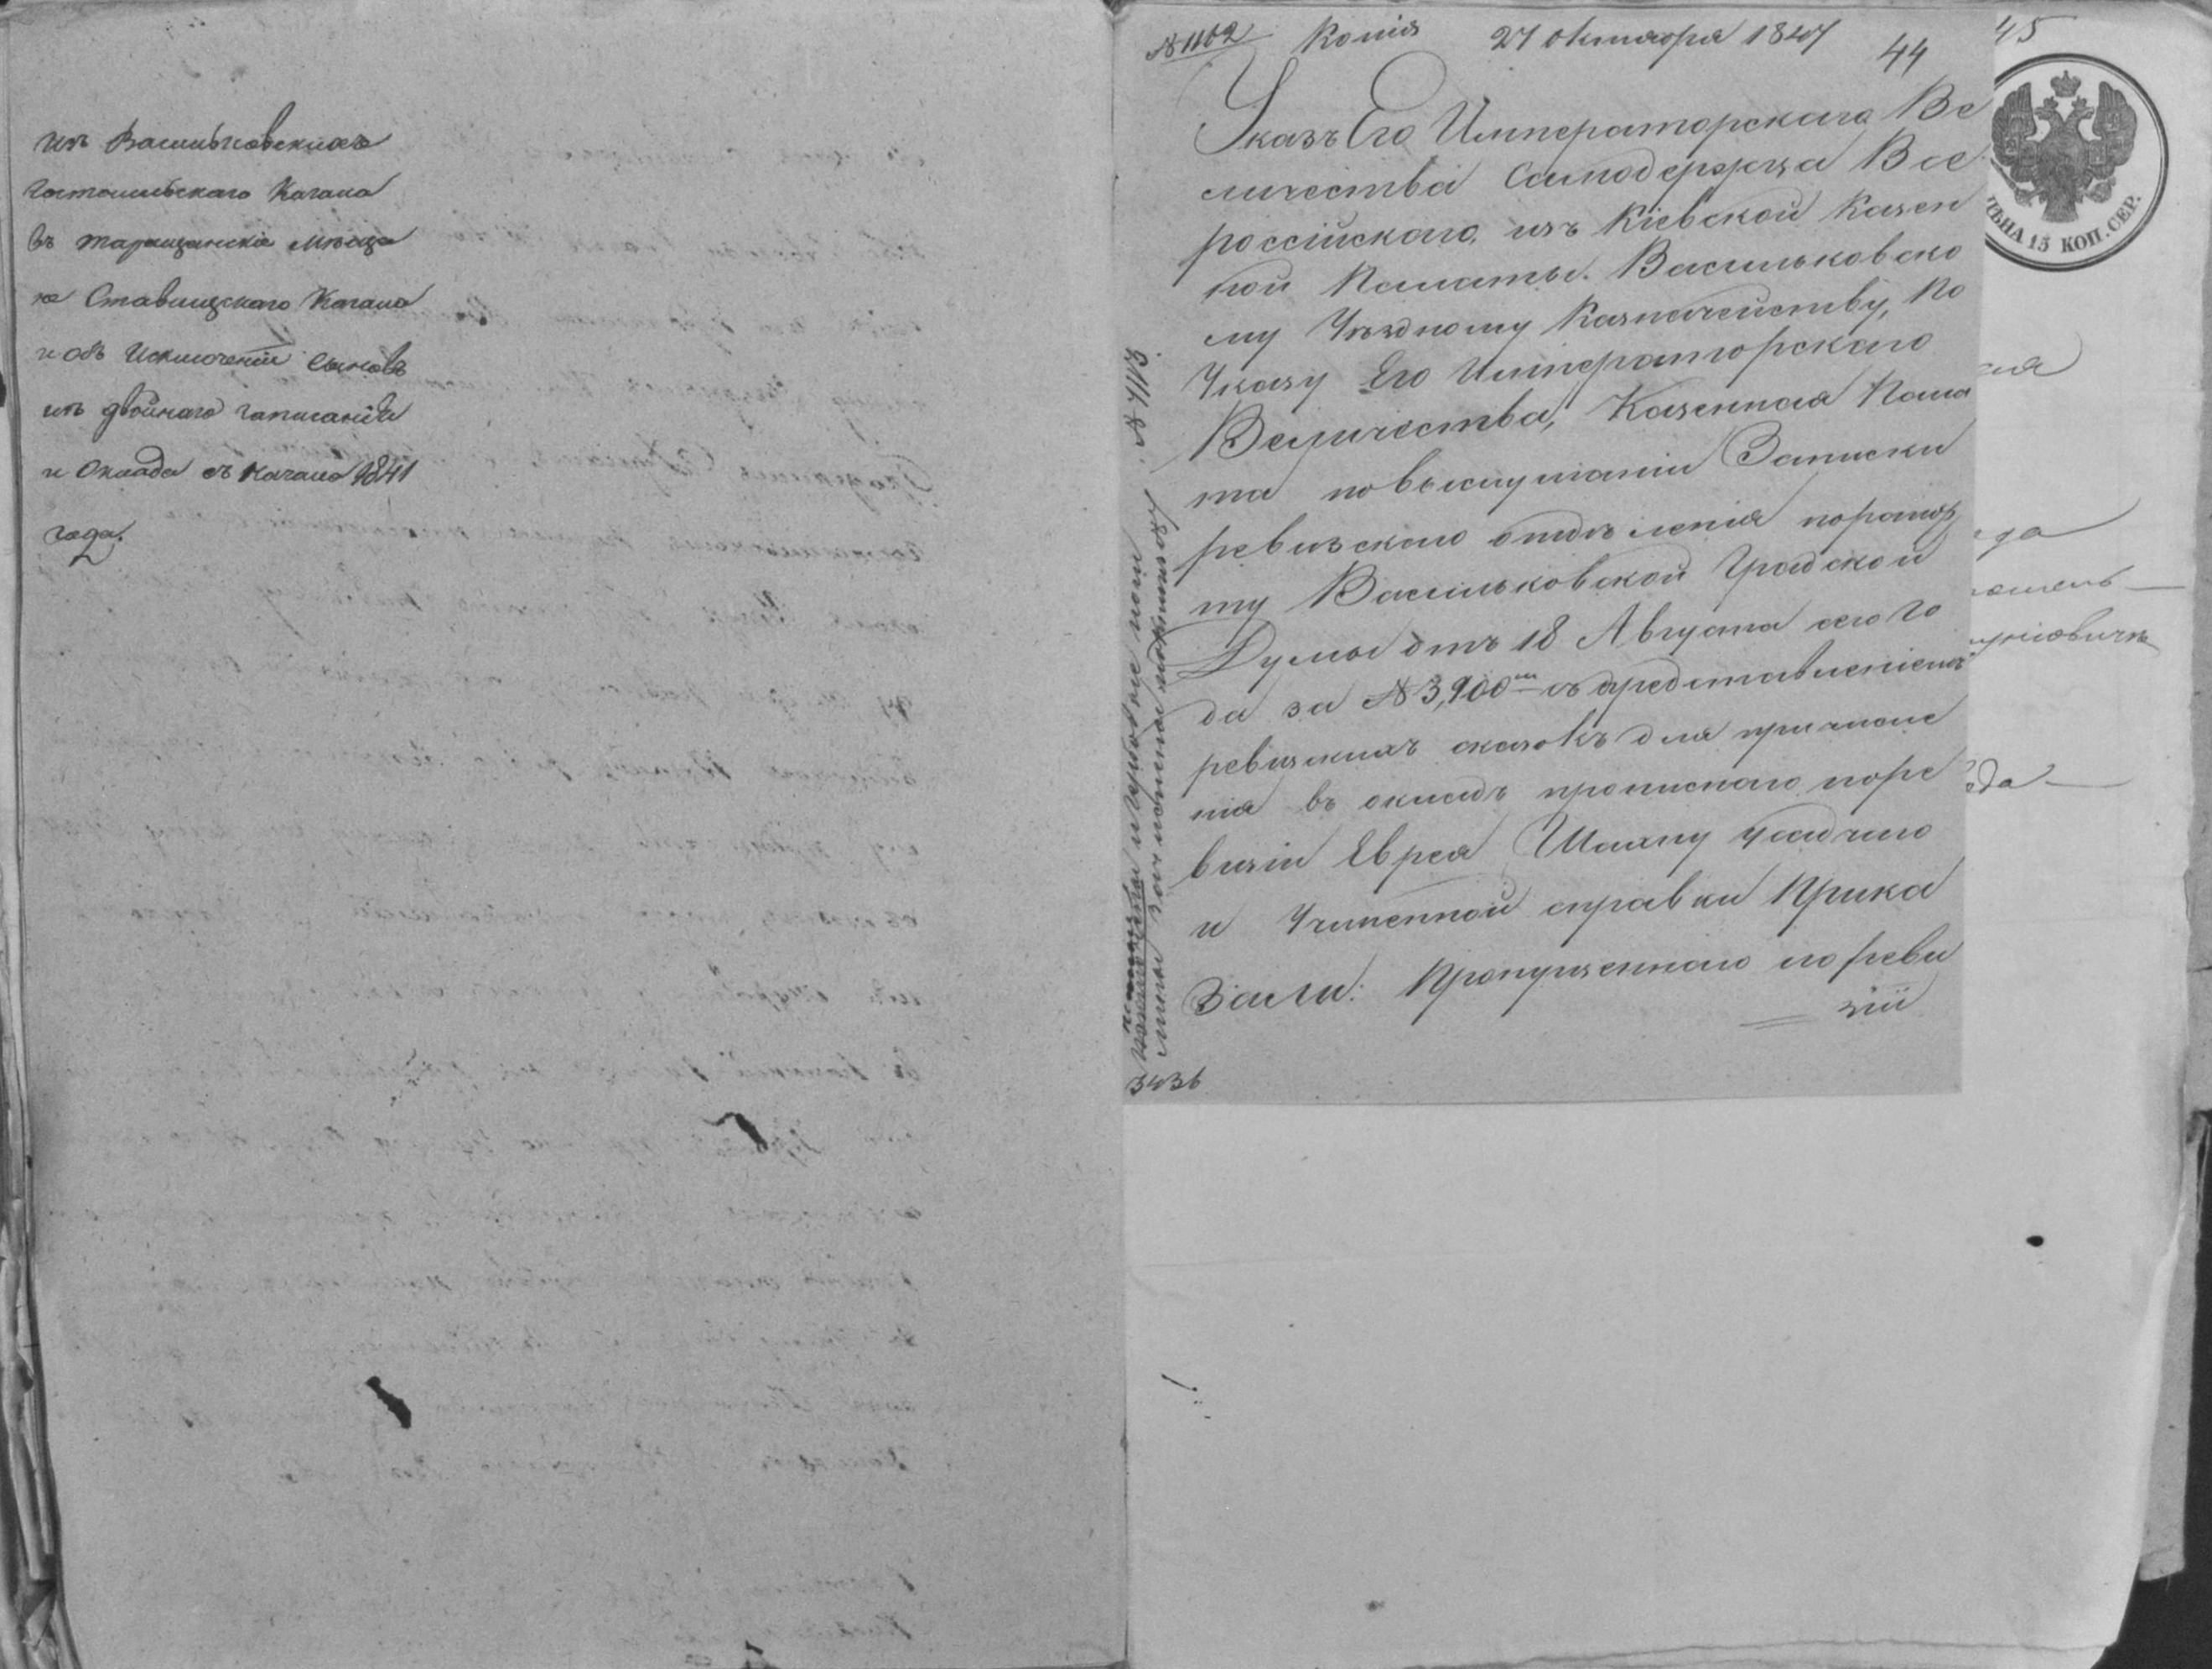 изъ Васильковскихъ
Гостомельскаго Кагала
въ таращанскіе мѣща
не Ставищскаго Кагала
и объ Исключеніи Сыновъ
изъ двойнаго записанія
и Оклада съ начала 1841
года.
№ 1102 Копія 27 октября 1847 44
Указъ Его Императорскаго Ве
личества Самодержца Все
россійскаго, изъ Кіевской Казен
ной Палаты. Васильковско
му Уѣздному Казначейству, По
Указу Его Императорскаго
Величества, Казенная Пала
та по выслушаніи Записки
ревизскаго отдѣленія порапор
ту Васильковской Градской
Думы отъ 18 Августа сего го
да за № 3,900мъ съ представленіемъ
ревизскихъ сказокъ для причисле
нія въ окладъ прописнаго поре
визіи Еврея Шаину Усадчаго
и Учиненной справки Прика
зали: Пропущеннаго поревизіи
3436
45
ЦѢНА 15 КОП. СЕР.
да